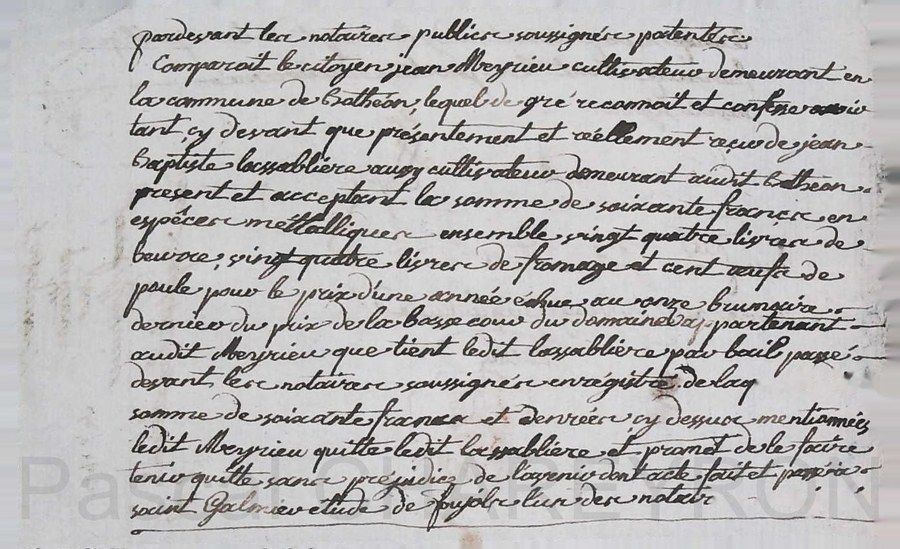 pardevant les notaires publics soussignés patentés
Comparait le citoyen jean Meyrieu cultivateur demeurant en
la commune de bothéon, lequel de gré reconnoit et confesse avoir
tant cy devant que présentement et réellement reçu de jean
baptiste lassabliere aussy cultivateur demeurant audit bothéon
present et acceptant la somme de soixante francs en
espéces métalliques ensemble vingt quatre livres de
beurre, vingt quatre livres de fromage et cent oeufs de
poule pour le prix d'une année échue au onze brumaire
dernier du prix de la basse cour du domaine appartenant
audit Meyrieu que tient ledit lassabliere par bail passé
devant les notaires soussignés enregistré de laq
somme de soixante francs et denrées cy dessus mentionnées
ledit Meyrieu quitte ledit lassabliere et promet de le faire
tenir quitte sans préjudice de l'avenir dont acte fait et passé a
saint Galmier etude de l'un des notair